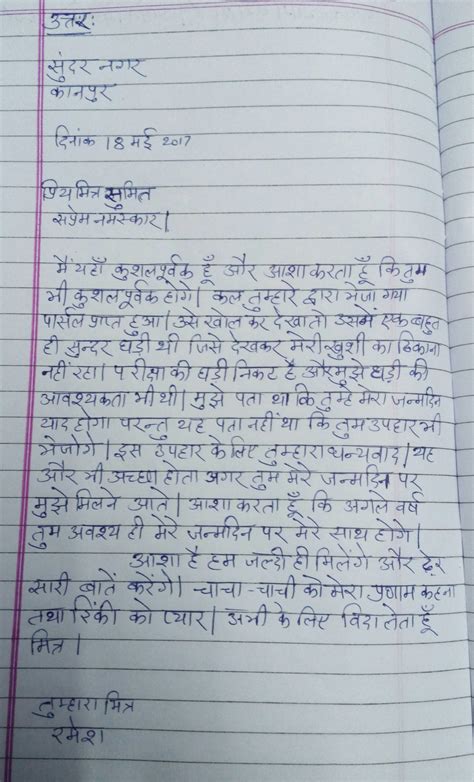 उत्तर:
सुंदर नगर
कानपुर
दिनांक 18 मई 2017
प्रिय मित्र सुमित
सप्रेम नमस्कार।
मैं यहाँ कुशलपूर्वक हूँ और आशा करता हूँ कि तुम
भी कुशलपूर्वक होगे। कल तुम्हारे द्वारा भेजा गया
पार्सल प्राप्त हुआ। उसे खोल कर देखा तो उसमें एक बहुत
ही सुन्दर घड़ी थी जिसे देखकर मेरी खुशी का ठिकाना
नहीं रहा। परीक्षा की घड़ी निकट है और मुझे घड़ी की
आवश्यकता भी थी। मुझे पता था कि तुम्हे मेरा जन्मदिन
याद होगा परन्तु यह पता नहीं था कि तुम उपहार भी
भेजोगे। इस उपहार के लिए तुम्हारा धन्यवाद। यह
और भी अच्छा होता अगर तुम मेरे जन्मदिन पर
मुझे मिलने आते। आशा करता हूँ कि अगले वर्ष
तुम अवश्य ही मेरे जन्मदिन पर मेरे साथ होगे।
आशा है हम जल्दी ही मिलेंगे और ढेर
सारी बातें करेंगे। चाचा-चाची को मेरा प्रणाम कहना
तथा रिंकी को प्यार। अभी के लिए विदा लेता हूँ
मित्र।
तुम्हारा मित्र
रमेश